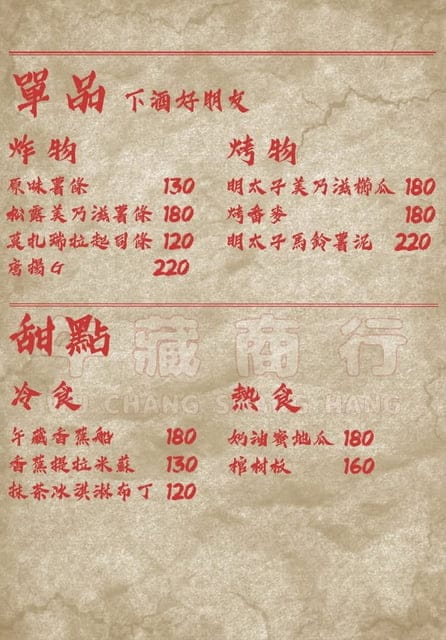 單品 下酒好朋友
炸物
原味薯條 130
松露美乃滋薯條 180
莫扎瑞拉起司條 120
唐揚G 220
烤物
明太子美乃滋櫛瓜 180
烤香麥 180
明太子馬鈴薯泥 220
甜點
午藏商行
WU CHANG SHANG HANG
冷食
午藏香蕉船 180
香蕉提拉米蘇 130
抹茶冰淇淋布丁 120
熱食
奶油蜜地瓜 180
棺材板 160